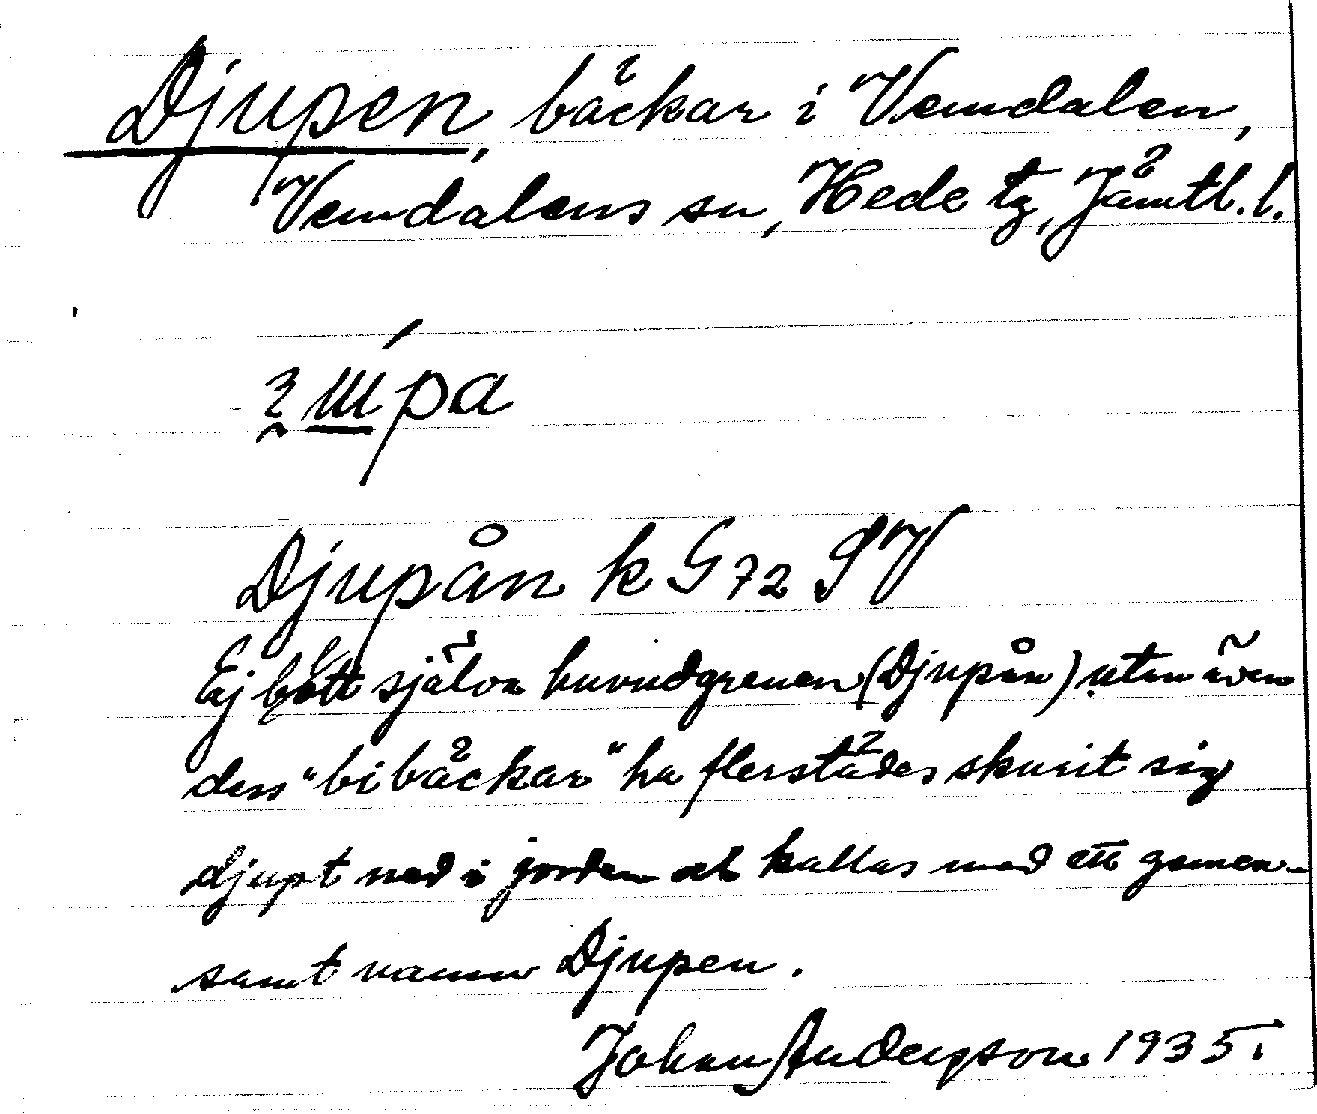 Djupen, bäckar i Vemdalen,
Vemdalens sn, Hede tg, Jämtl. l.
Djupån k G 72 SV
Ej blott själva huvudgrenen (Djupån) utan även
dess "bibäckar" ha flerstädes skurit sig
djupt ned i jorden och kallas med ett gemen-
samt namn Djupen.
Johan Anderson 1935.